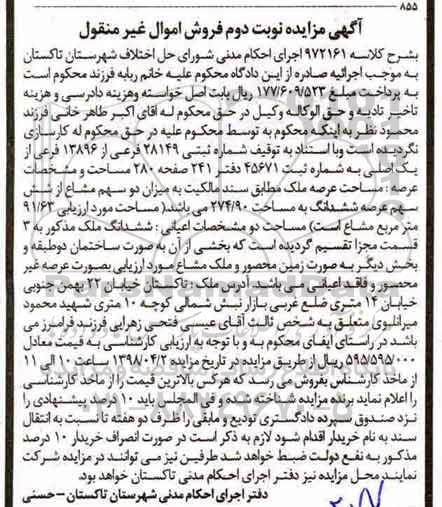 ۸۵۵
آگهی مزایده نوبت دوم فروش اموال غیر منقول
بشرح کلاسه ۹۷۲۱۶۱ اجرای احکام مدنی شورای حل اختلاف شهرستان تاکستان
به موجب اجرائیه صادره از این دادگاه محکوم علیه خانم ربابه فرزند محکوم است
به پرداخت مبلغ ۱۷۷/۶۰۹/۵۲۳ ریال بابت اصل خواسته وهزینه دادرسی و هزینه
تاخیر تادیه و حق الوکاله وکیل در حق محکوم له اقای اکبر طاهر خانی فرزند
محمود نظر به اینکه محکوم به توسط محکوم علیه در حق محکوم له کارسازی
نگردیده است وبا استناد به توقیف شماره ثبتی ۲۸۱۴۹ فرعی از ۱۳۸۹۶ فرعی از
یک اصلی به شماره ثبت ۴۵۶۷۱ دفتر ۲۴۱ صفحه ۲۸۰ مساحت و مشخصات
عرصه : مساحت عرصه ملک مطابق سند مالکیت به میزان دو سهم مشاع از شش
سهم عرصه ششدانگ به مساحت ۲۷۴/۹۰ می باشد( مساحت مورد ارزیابی ۹۱/۶۳
متر مربع مشاع است) مساحت دو مشخصات اعیانی : ششدانگ ملک مذکور به ۳
قسمت مجزا تقسیم گردیده است که بخشی از آن به صورت ساختمان دوطبقه و
بخش دیگر به صورت زمین محصور و ملک مشاع مورد ارزیابی بصورت عرصه غیر
محصور و فاقد اعیانی می باشد. آدرس ملک : تاکستان خیابان ۲۲ بهمن جنوبی
خیابان ۱۴ متری ضلع غربی بازار نبش شمالی کوچه ۱۰ متری شهید محمود
میرانلیوی متعلق به شخص ثالث آقای عیسی فتحی زهرایی فرزند فرامرز می
باشد در راستای ایفای محکوم به و با توجه به ارزیابی کارشناسی به قیمت معادل
۵۹۵/۵۹۵/۰۰۰ ریال از طریق مزایده در تاریخ مزایده ۱۳۹۸/۰۴/۲ ساعت ۱۰ الی ۱۱
از ماخذ کارشناس بفروش می رسد که هرکس بالاترین قیمت را از ماخذ کارشناسی
را اعلام نماید برنده مزایده شناخته شده و فی المجلس باید ۱۰ درصد پیشنهادی را
نزد صندوق سپرده دادگستری تودیع و مابقی را ظرف دو هفته تا نسبت به انتقال
سند به نام خریدار اقدام شود لازم به ذکر است در صورت انصراف خریدار ۱۰ درصد
مذکور به نفع دولت ضبط خواهد شد طرفین نیز می توانند در مزایده شرکت
نمایند محل مزایده نیز دفتر اجرای احکام مدنی تاکستان خواهد بود.
دفتر اجرای احکام مدنی شهرستان تاکستان – حسنی